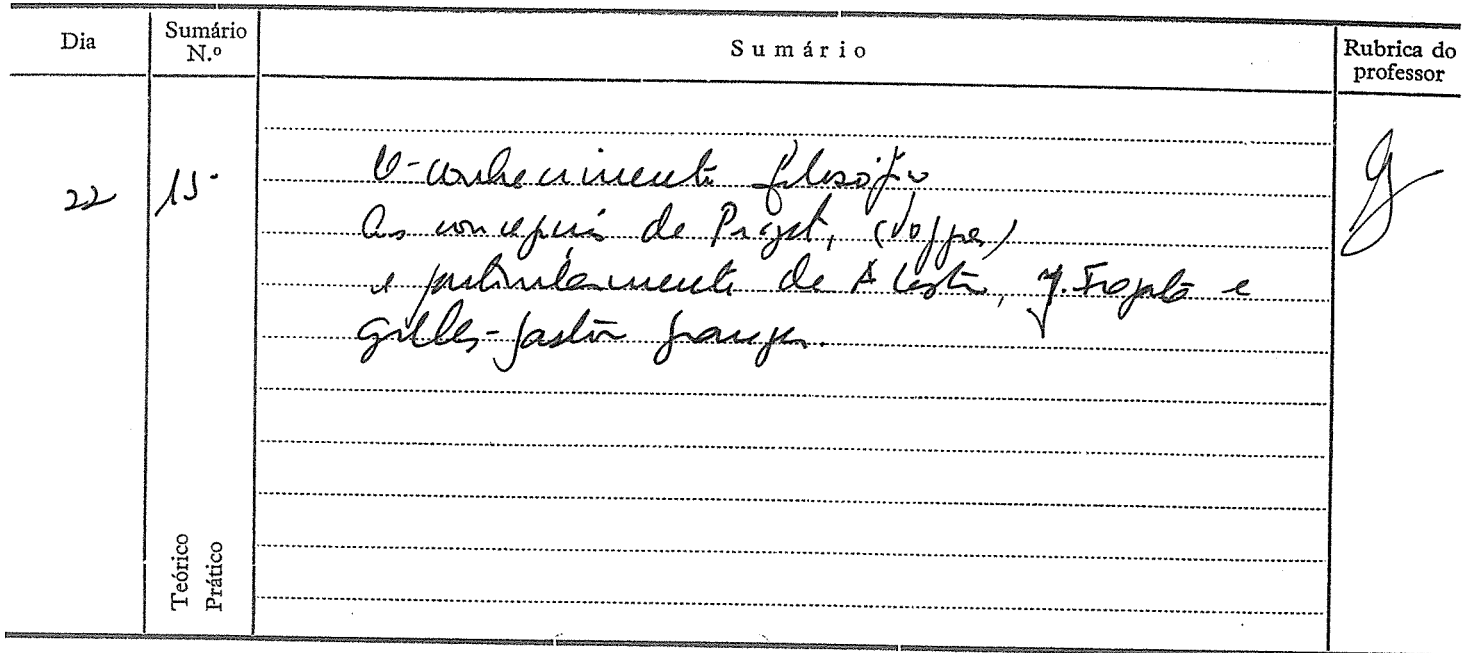 Dia
Sumário
N.º
Sumário
Rubrica do
professor
22
15
O conhecimento filosófico
As concepções de Piaget,
e particularmente de A. , J. Fragata e
Gilles-Gaston Granger.
Teórico
Prático